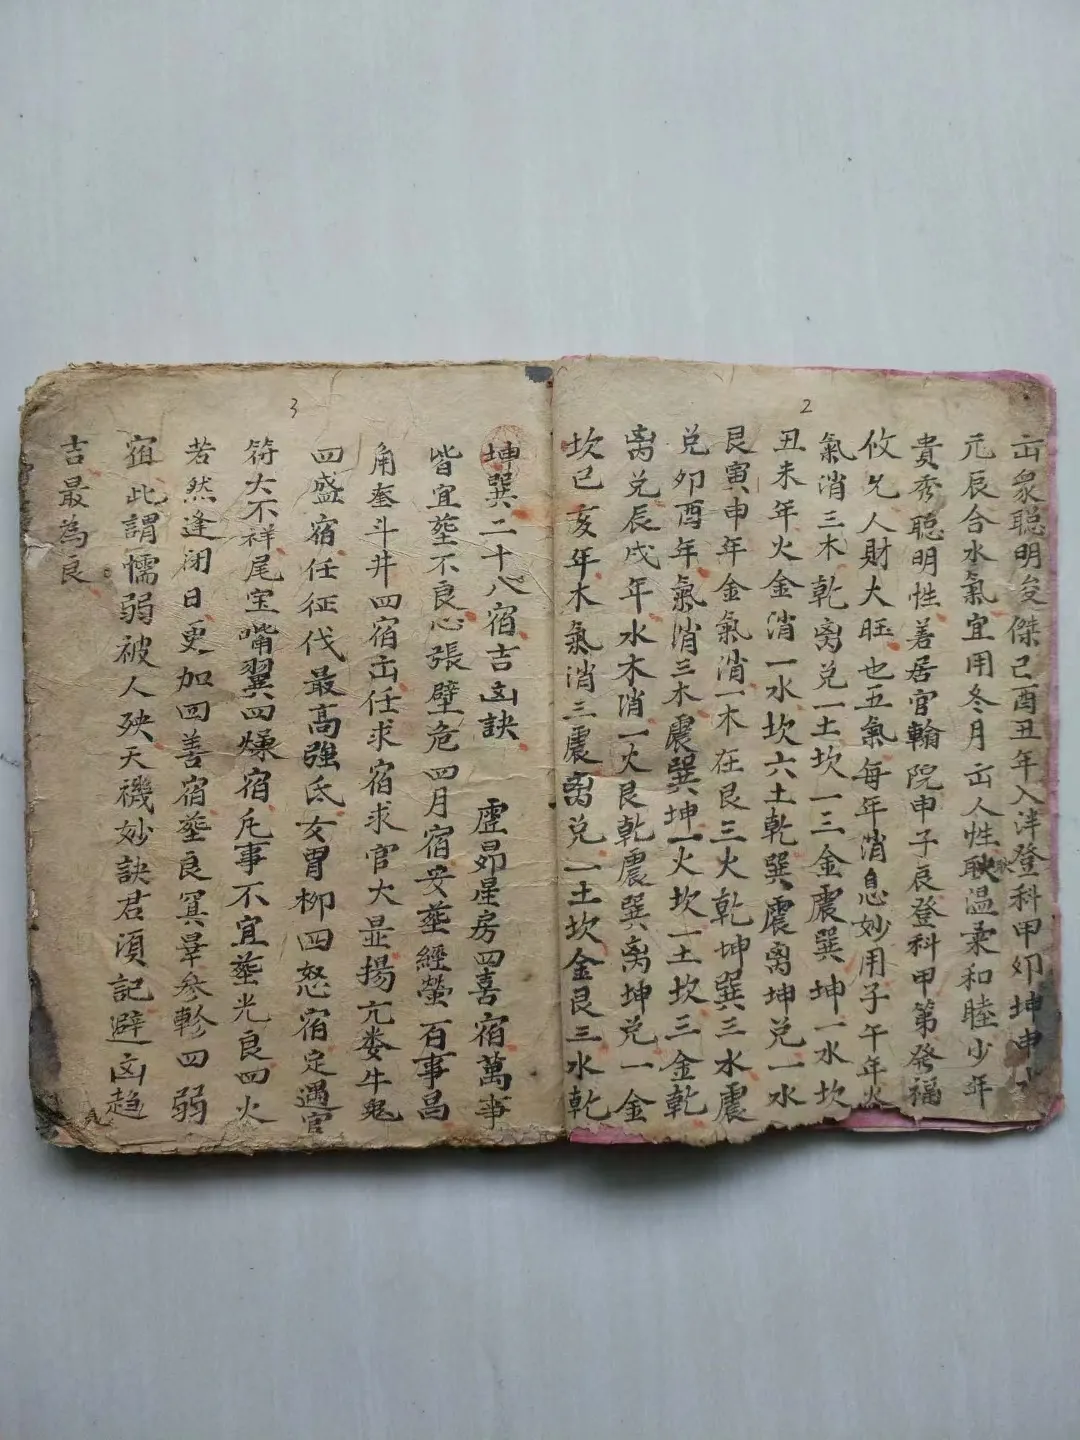 2
出衆聰明俊傑己酉丑年入泮登科甲卯坤申
元辰合水氣宜用冬月出人性耿温柔和睦少年
貴秀聰明性善居官翰院申子辰登科甲第發福
攸久人財大旺也五氣每年消息妙用子午年火
氣消三木乾离兑一土坎一三金震巽坤一水坎
丑未年火金消一水坎六土乾巽震离坤兑一水
艮寅申年金氣消一木在艮三火乾坤巽三水震
兑卯酉年氣消三木震巽坤一火坎一土坎三金乾
离兑辰戌年水木消一火艮乾震巽离坤兑一金
坎巳亥年木氣消三震离兑一土坎金艮三水乾
3
坤巽二十八宿吉凶訣 虚昴星房四喜宿萬事
皆宜塟不良心張壁危四月宿安塟經營百事昌
角奎斗井四宿出任求宿求官大显揚亢娄牛鬼
四盛宿任征伐最高強氐女胃柳四怒宿定遇官
符大不祥尾室嘴翼四燥宿凡事不宜塟光良四火
若然逢闭日更加四善宿塟良箕畢參軫四弱
宿此謂懦弱被人殃天禨妙訣君須記避凶趋
吉最為良